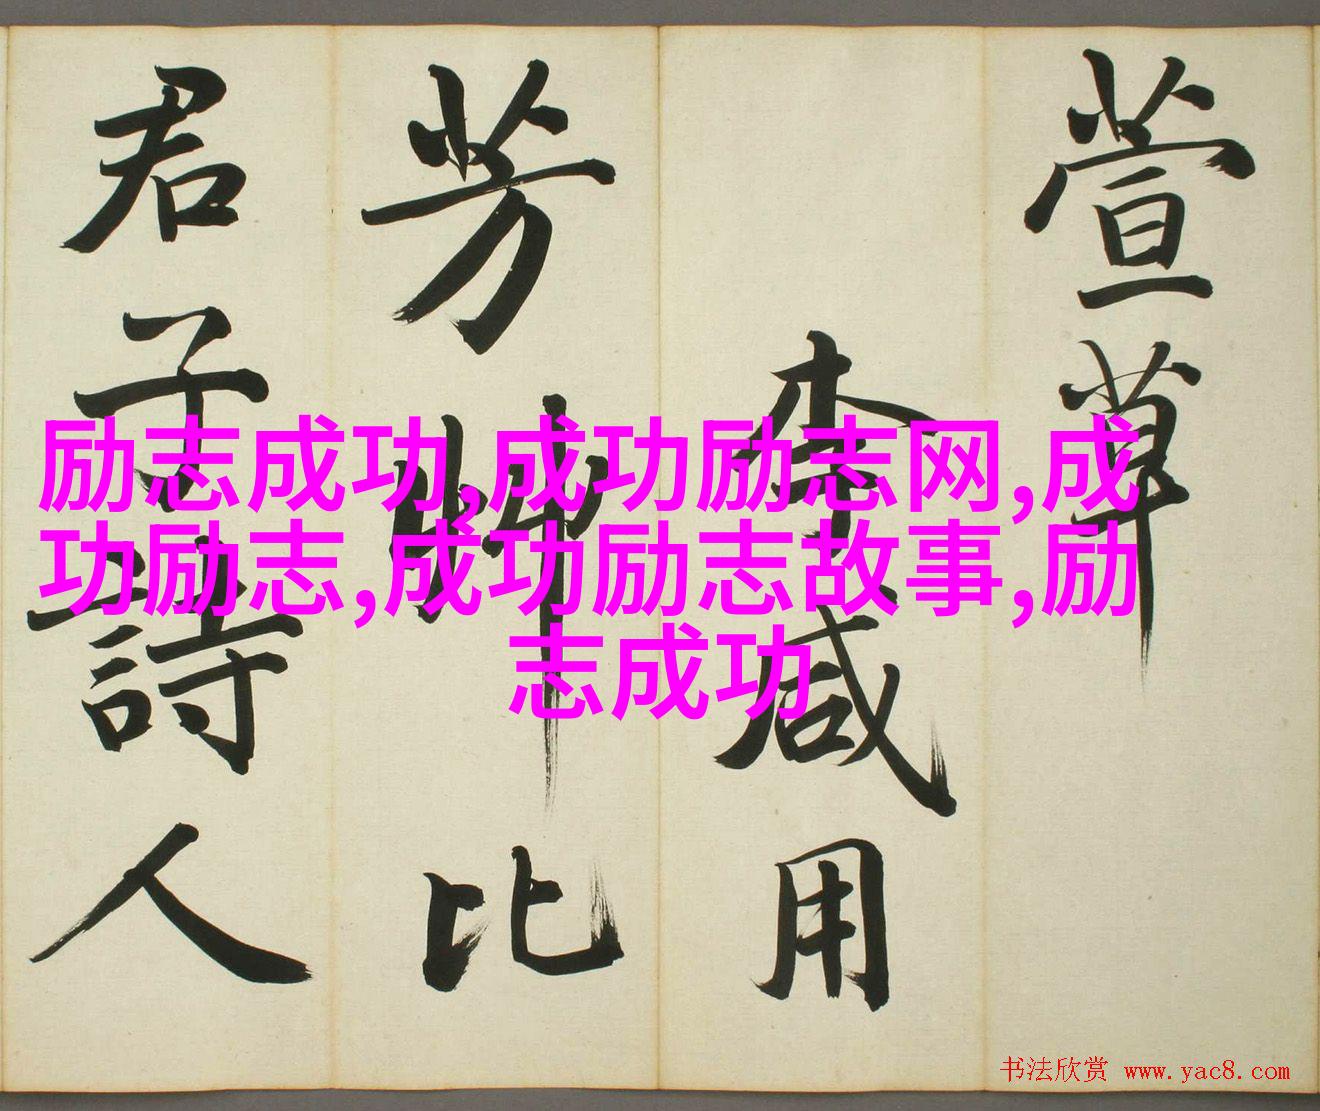 萱草
李咸用
芳艸比
君子詩人
励志成功,成功励志网,成
功励志,成功励志故事,励
志成功
书法欣赏 www.yac8.com